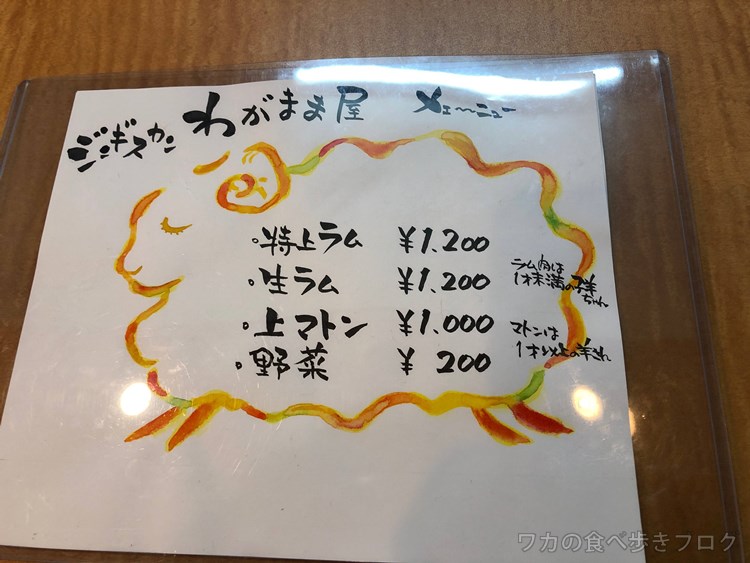 ジンギスカン わがまま屋 メニュー
。特上ラム ¥1.200
。生ラム ¥1.200
ラム肉は
1才未満の子羊
ちゃん
。上マトン ¥1.000
マトンは
1才以上の羊さん
。野菜 ¥ 200
ワカの食べ歩きブログ